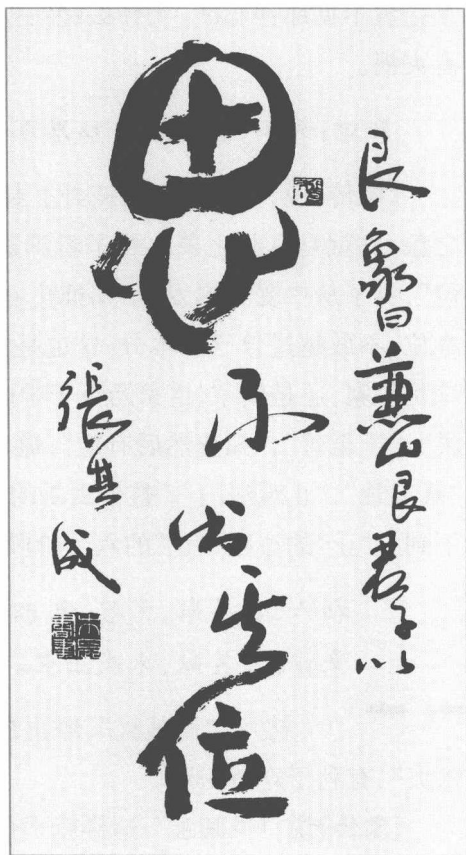 艮象曰兼山艮君子以
思不出其位
張其成